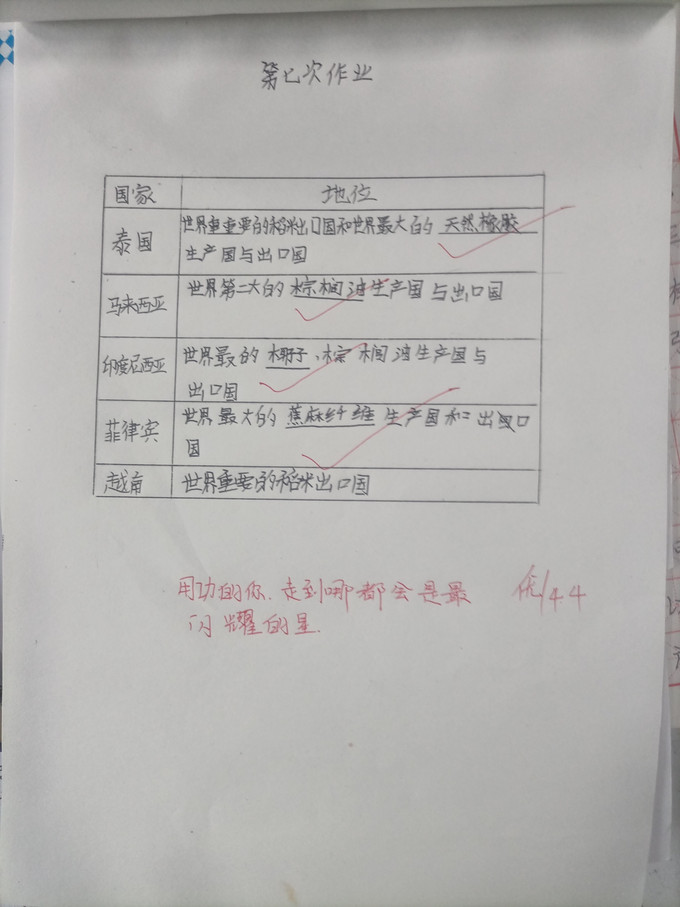 第七次作业
国家 地位
泰国 世界重要的稻米出口国和世界最大的 天然橡胶
生产国与出口国
马来西亚 世界第二大的棕榈油生产国与出口国
印度尼西亚 世界最的椰子、棕榈油生产国与
出口国
菲律宾 世界最大的蕉麻纤维生产国和出口
国
越南 世界重要的稻米出口国
用功的你,走到哪都会是最 优/4 4
闪耀的星.